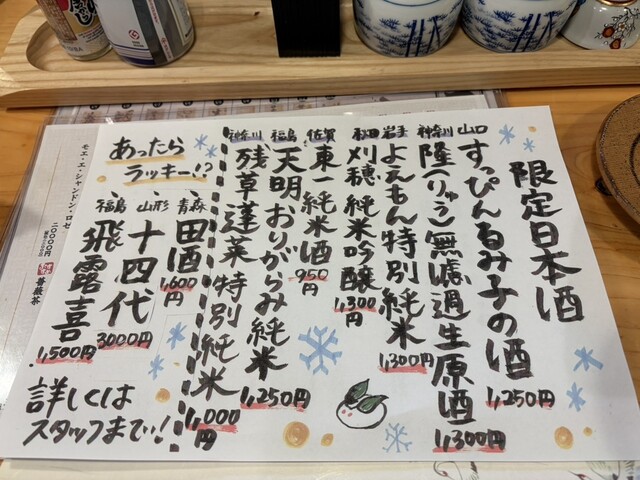 限定日本酒
山口
すっぴんるみ子の酒
1,250円
神奈川
隆(りゅう)無濾過生原酒
1,300円
岩手
よえもん特別純米
1,300円
秋田
刈穂 純米吟醸
1,300円
佐賀
東一純米酒
950円
福島
天明おりがらみ純米
1,250円
神奈川
残草蓬莱 特別純米
1,000円
あったら
ラッキー!?
青森
田酒
1,600円
山形
十四代
3000円
福島
飛露喜
1,500円
詳しくは
スタッフまでぃ!
モエ・エ・シャンドン・ロゼ
二〇〇〇〇円
薔薇茶